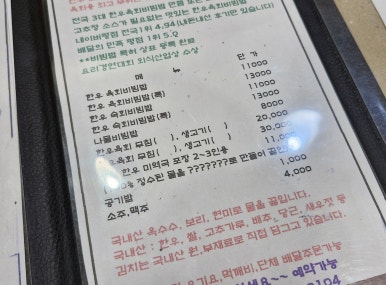 전국 3대 한우육회비빔밥
고추장 소스가 필요없는 맛있는 한우육회비빔밥
네이버평점 전국 1위 4.94(내돈내산 후기만 있습니다)
배달의 민족 평점 1위 5.0
**비빔밥 특허 상표 등록 완료
요리경연대회 외식산업상 수상
메 뉴 단 가
한우 육회비빔밥 11000
한우 육회비빔밥(특) 13000
한우 숙회비빔밥 11000
한우 숙회비빔밥(특) 13000
나물비빔밥 8000
한우육회 무침( ),생고기( ) 20,000
한우육회 무침( ),생고기( ) 30,000
한우 미역국 포장 2-3인용 11,000
정수된 물을 ???????로 만들어
공기밥 1,000
소주,맥주 4,000
국내산 옥수수, 보리, 현미로 물을 끓입니다.
국내산 : 한우, 쌀, 고추가루, 배추, 당근, 새우젓 등
김치는 국내산 원,부재료로 직접 담그고 있습니다.
요기요, 먹깨비,단체 배달주문가능
예약가능